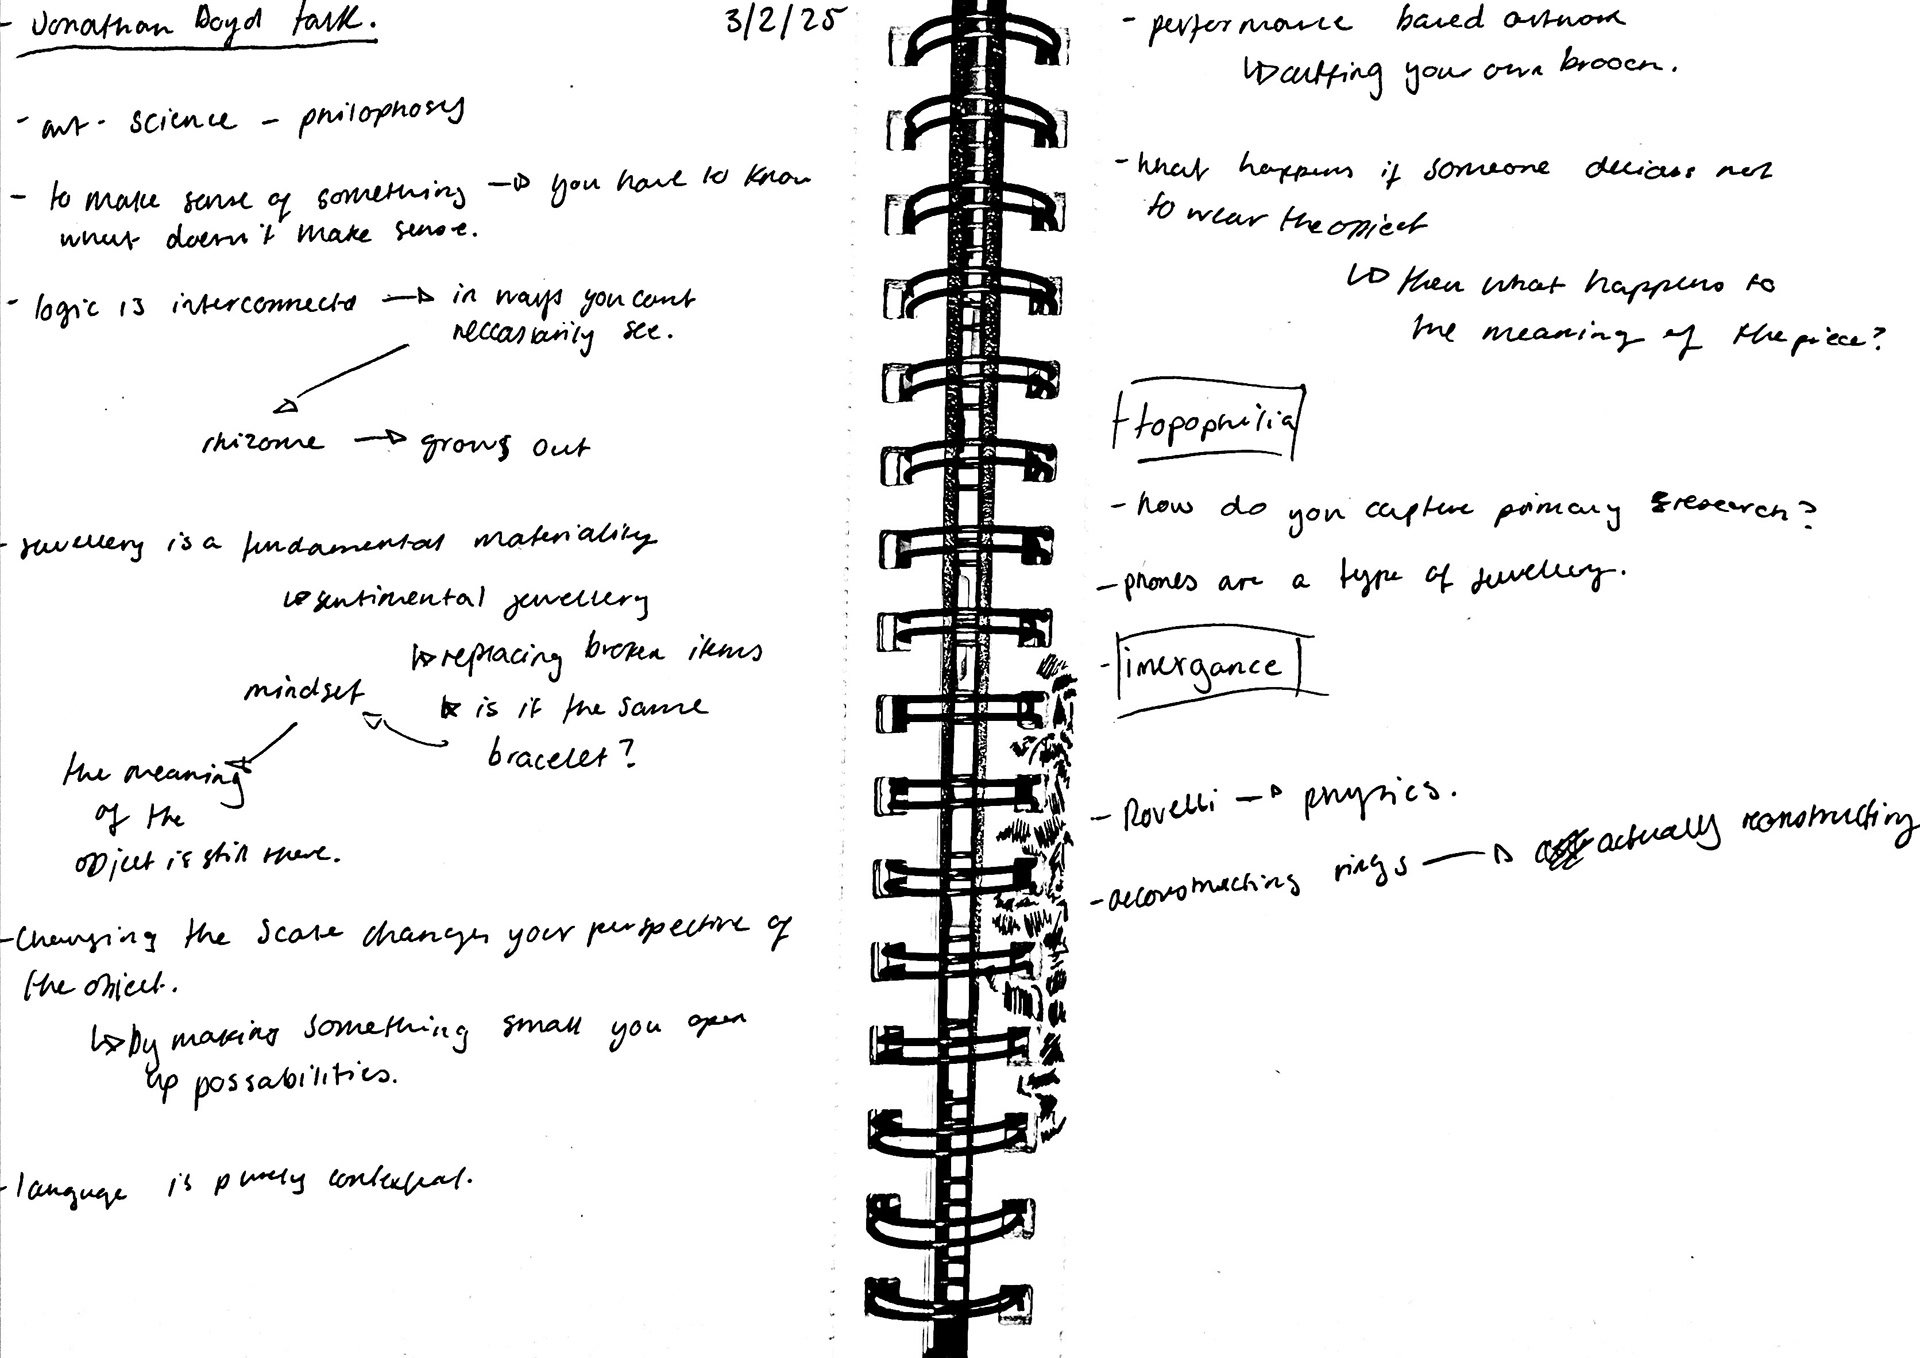 - Jonathan Boyd talk.
3/2/25
- art - science - philophosy
- to make sense of something → you have to know
what doesn't make sense.
- logic is interconnected → in ways you cant
neccasiarily see.
rhizome → grows out
- jewellery is a fundamental materiality
↳ sentimental jewellery
↳ replacing broken items
↳ is it the same
bracelet?
mindset
the meaning
of the
object is still there.
- Changing the scale changes your perspective of
the object.
↳ by making something small you open
up possabilities.
- language is purely contextual.
- performance based artwork
↳ cutting your own brooch.
- what happens if someone decides not
to wear the object
↳ then what happens to
the meaning of the piece?
- topophilia
- how do you capture primary research?
- phones are a type of jewellery.
- imergance
- Rovelli → physics.
- deconstructing rings → actually reconstructing